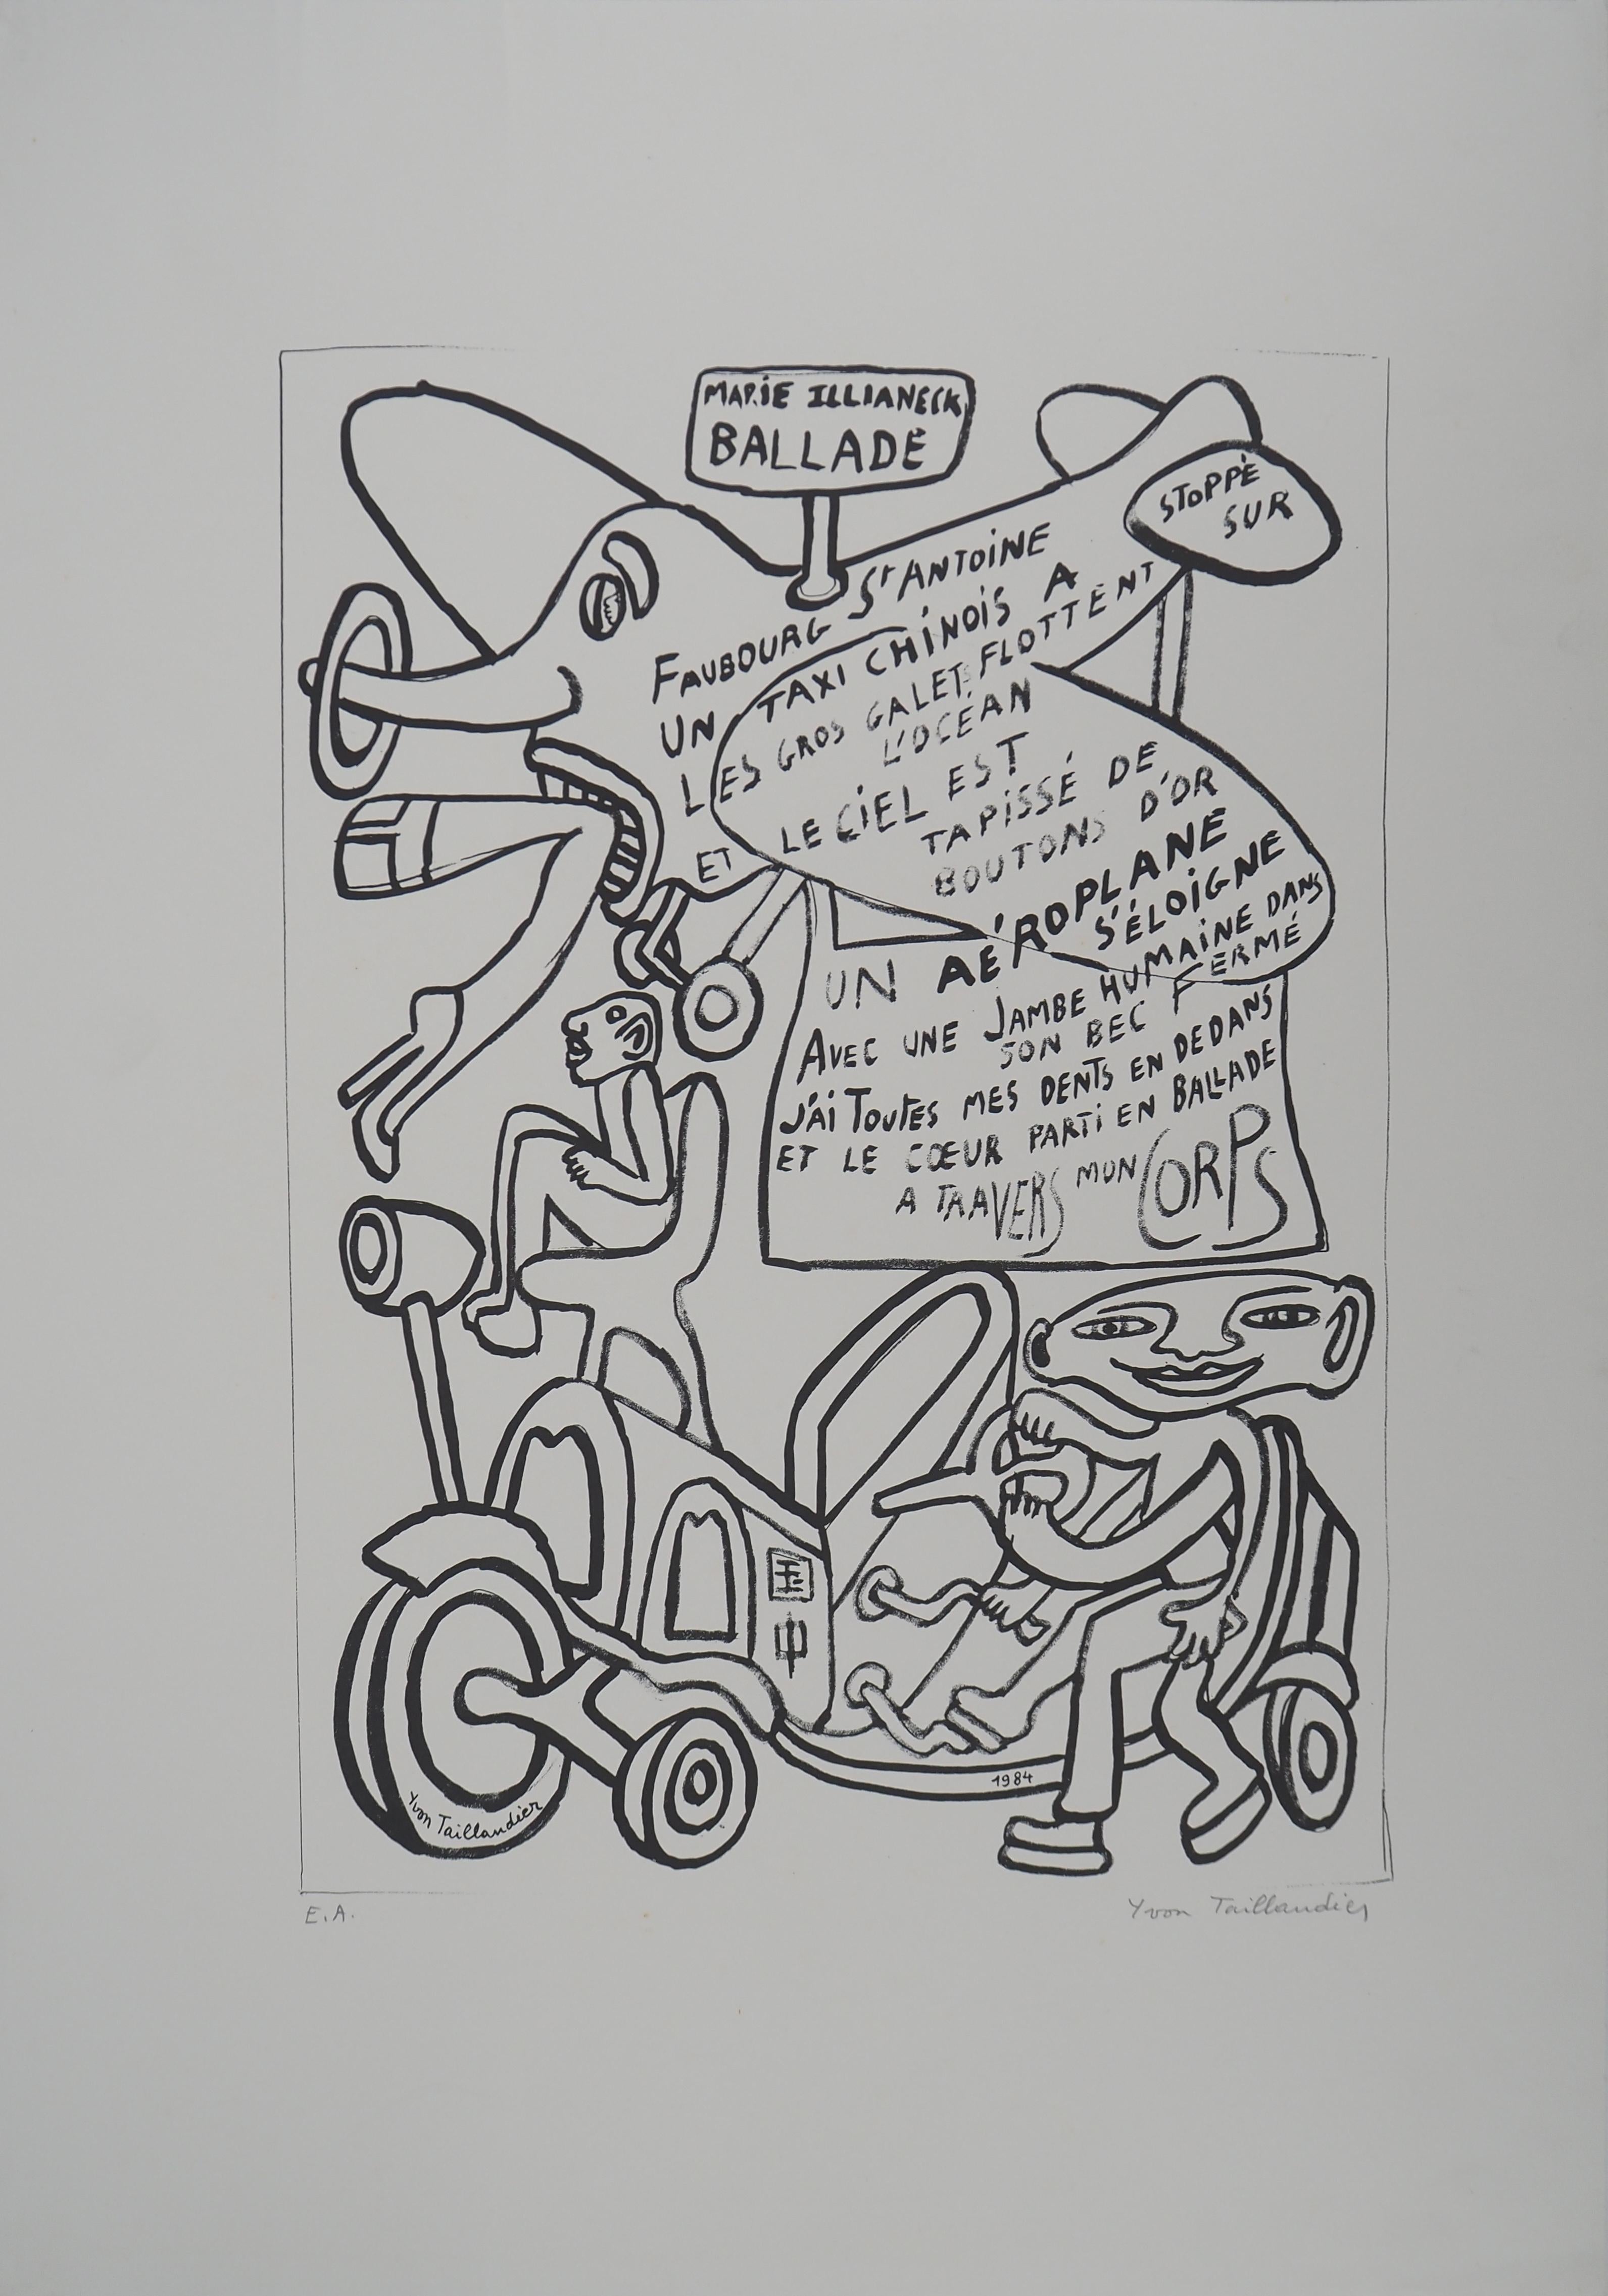 MARIE ILLIANECK
BALLADE
STOPPÉ
SUR
FAUBOURG St ANTOINE
UN TAXI CHINOIS A
LES GROS GALETS FLOTTENT
L'OCÉAN
ET LE CIEL EST
TAPISSÉ DE
BOUTONS D'OR
UN AÉROPLANE
S'ÉLOIGNE
AVEC UNE JAMBE HUMAINE DANS
SON BEC FERMÉ
J'AI TOUTES MES DENTS EN DEDANS
ET LE CŒUR PARTI EN BALLADE
A TRAVERS MON CORPS
中
1984
Yvon Taillandier
E.A.
Yvon Taillandier